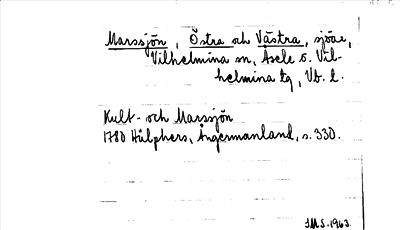 Marssjön, Östra och Västra, sjöar,
Vilhelmina sn, Åsele o. Vil-
helmina tg, Vb. l.
Kult- och Marssjön
1780 Hülphers, Ångermanland, s. 330.
IMS. 1963